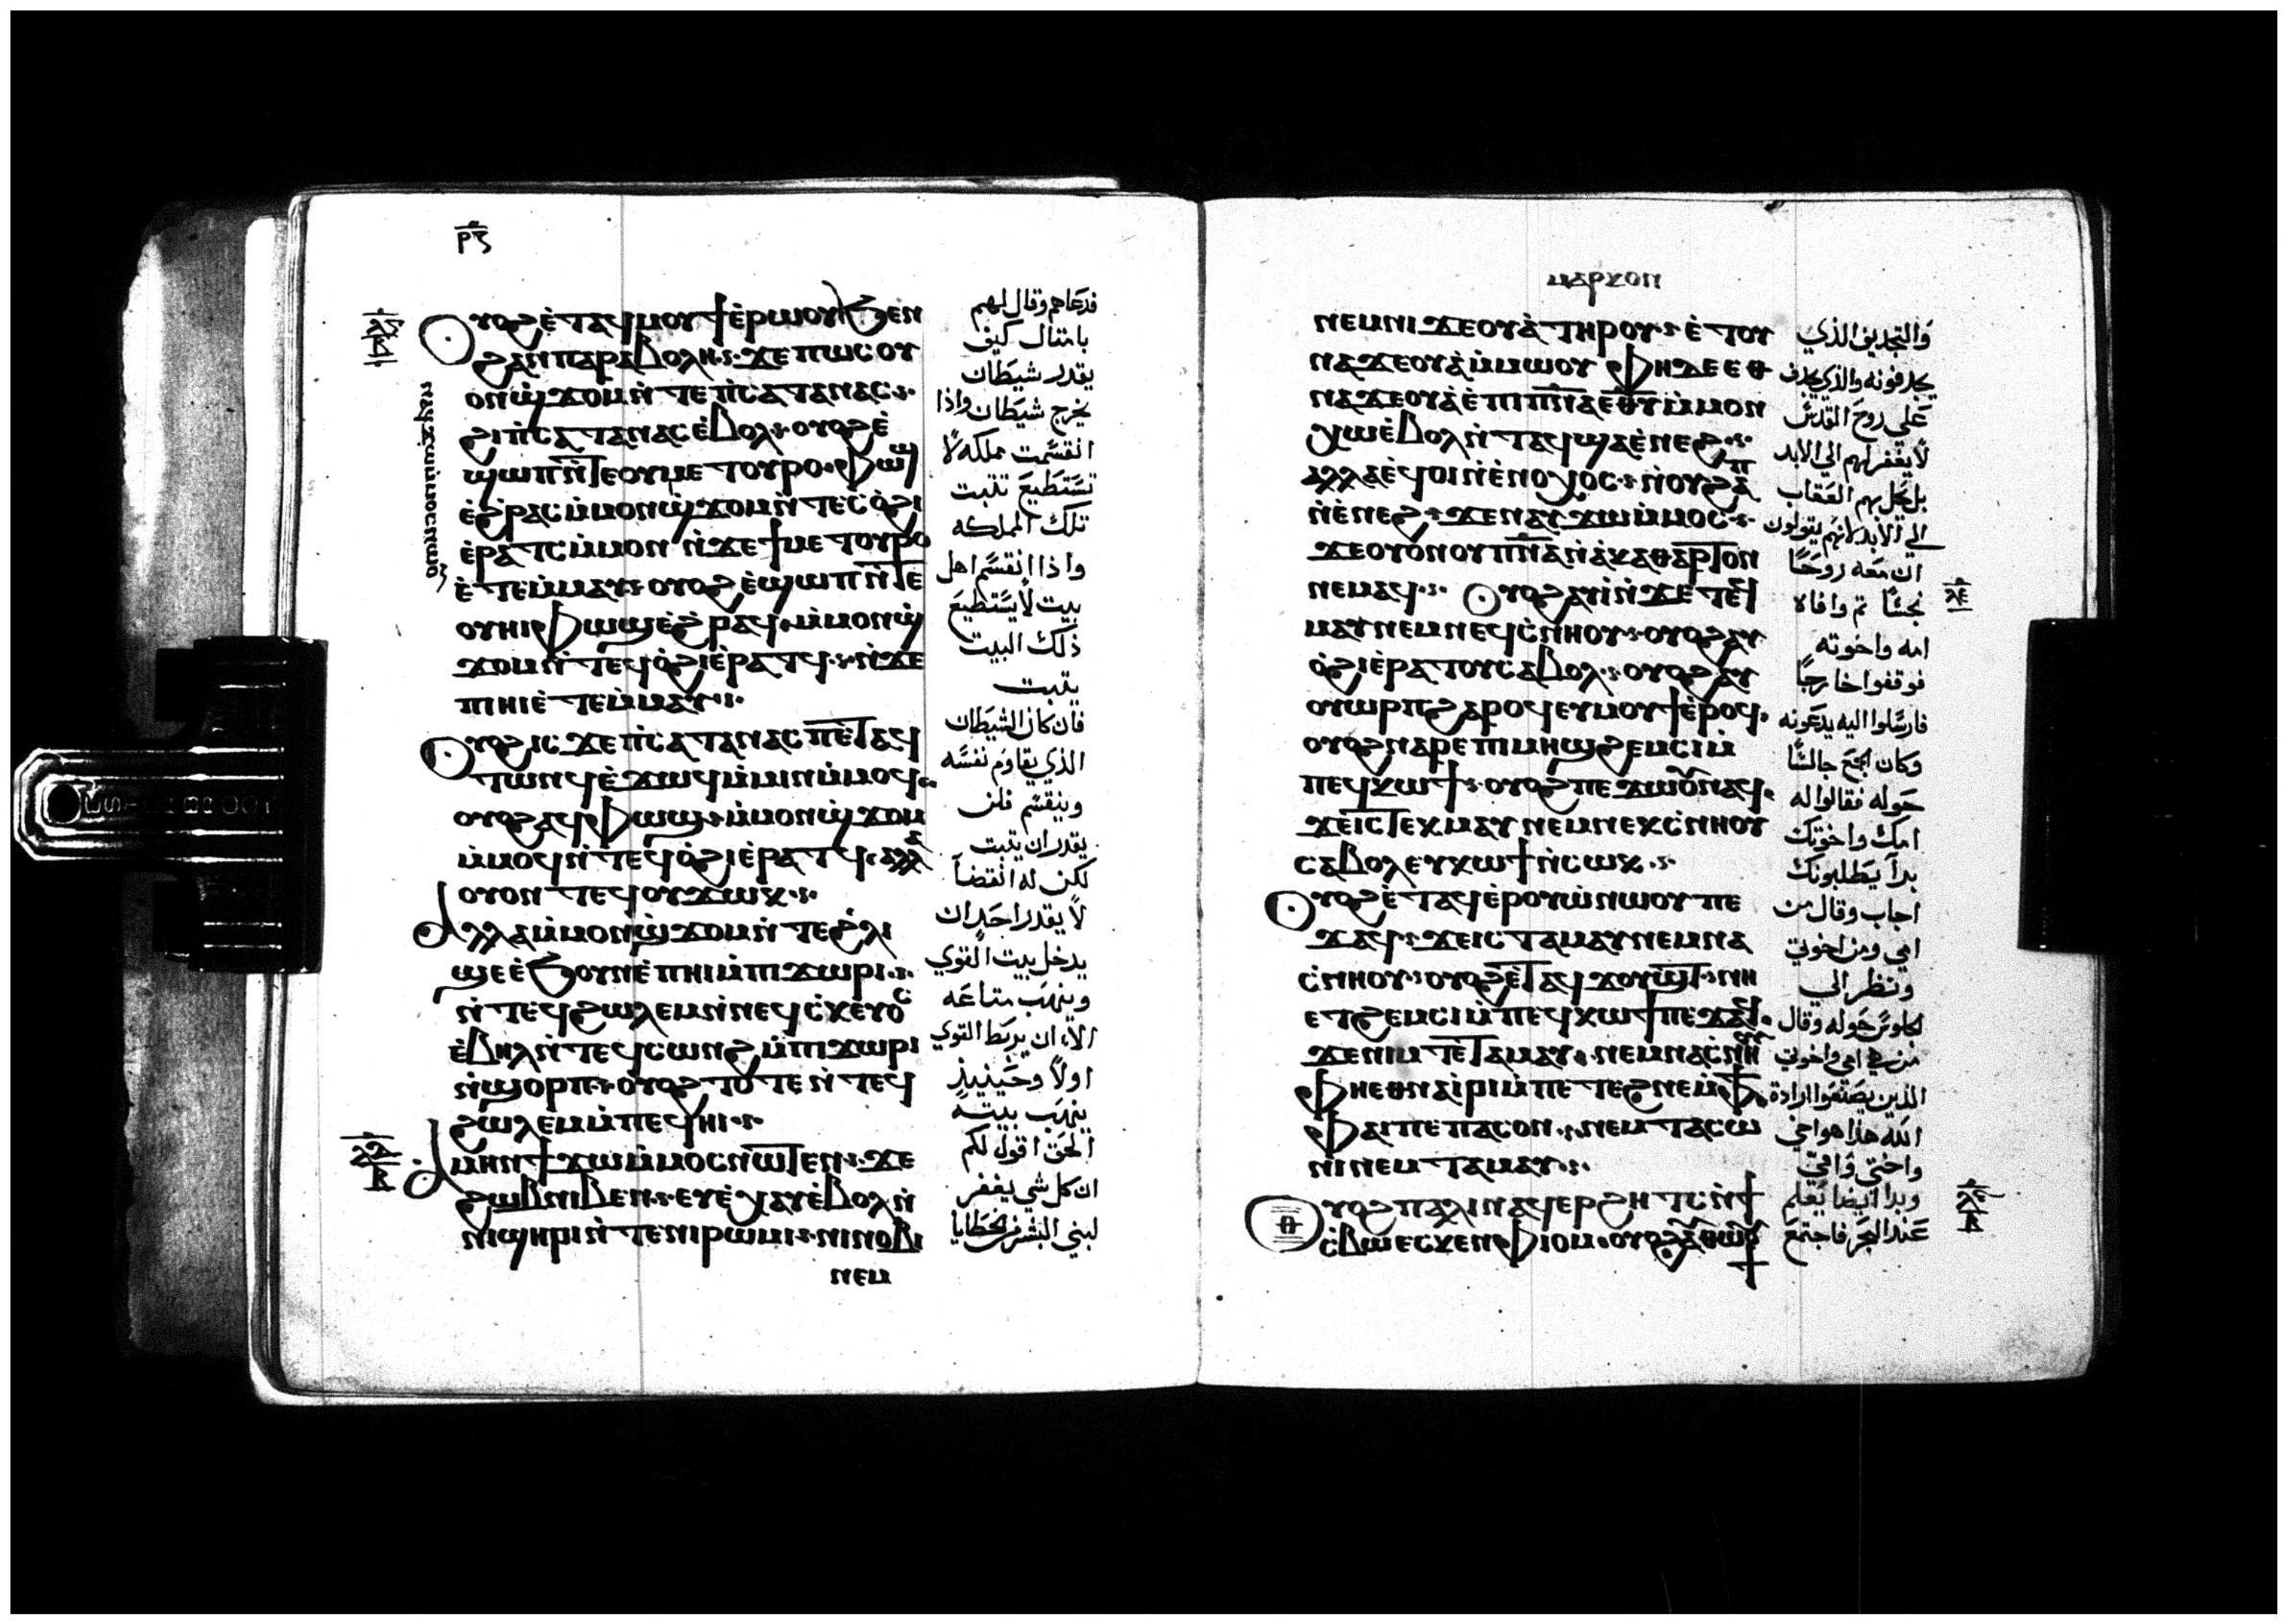 ⲣⲋ
ⲟⲩⲟϩ ⲉ̀ⲧⲁϥⲙⲟⲩϯ ⲉ̀ⲣⲱⲟⲩ ϧⲉⲛ
ϩⲁⲛⲡⲁⲣⲁⲃⲟⲗⲏ ϫⲉ ⲡⲱⲥ ⲟⲩ
ⲟⲛϣϫⲟⲙ ⲛ̀ⲧⲉ ⲡ̀ⲥⲁⲧⲁⲛⲁⲥ
ϩⲓ ⲡ̀ⲥⲁⲧⲁⲛⲁⲥ ⲉ̀ⲃⲟⲗ ⲟⲩⲟϩ ⲉ̀
ϣⲱⲡ ⲛ̀ⲧⲉ ⲟⲩⲙⲉⲧⲟⲩⲣⲟ ⲫⲱϣ
ⲉ̀ϩⲣⲁⲥ ⲙ̀ⲙⲟⲛϣϫⲟⲙ ⲛ̀ⲧⲉⲥⲟ̀ϩⲓ
ⲉ̀ⲣⲁⲧⲥ ⲙ̀ⲙⲟⲛ ⲛ̀ϫⲉ ϯⲙⲉⲧⲟⲩⲣⲟ
ⲉ̀ⲧⲉⲙ̀ⲙⲁⲩ ⲟⲩⲟϩ ⲉ̀ϣⲱⲡ ⲛ̀ⲧⲉ
ⲟⲩⲏⲓ ⲫⲱϣ ⲉ̀ϩⲣⲁϥ ⲙ̀ⲙⲟⲛϣ
ϫⲟⲙ ⲛ̀ⲧⲉϥⲟ̀ϩⲓ ⲉ̀ⲣⲁⲧϥ ⲛ̀ϫⲉ
ⲡⲓⲏⲓ ⲉ̀ⲧⲉⲙ̀ⲙⲁⲩ
ⲟⲩⲟϩ ⲓⲥϫⲉ ⲡ̀ⲥⲁⲧⲁⲛⲁⲥ ⲡⲉ̀ⲧⲁϥ
ⲧⲱⲛϥ ⲉ̀ϫⲱϥ ⲙ̀ⲙⲓⲛ ⲙ̀ⲙⲟϥ
ⲟⲩⲟϩ ⲁϥⲫⲱϣ ⲙ̀ⲙⲟⲛϣϫⲟⲙ
ⲙ̀ⲙⲟϥ ⲛ̀ⲧⲉϥⲟ̀ϩⲓ ⲉ̀ⲣⲁⲧϥ ⲁⲗⲗⲁ
ⲟⲩⲟⲛⲧⲉϥ ⲟⲩϫⲱⲕ
ⲁⲗⲗⲁ ⲙ̀ⲙⲟⲛϣϫⲟⲙ ⲛ̀ⲧⲉ ϩ̀ⲗⲓ
ϣⲉ ⲉ̀ϧⲟⲩⲛ ⲉ̀ⲡⲏⲓ ⲙ̀ⲡⲓϫⲱⲣⲓ
ⲛ̀ⲧⲉϥϩⲱⲗⲉⲙ ⲛ̀ⲛⲉϥⲥ̀ⲕⲉⲩⲟⲥ
ⲉ̀ⲃⲏⲗ ⲛ̀ⲧⲉϥⲥⲱⲛϩ ⲙ̀ⲡⲓϫⲱⲣⲓ
ⲛ̀ϣⲟⲣⲡ ⲟⲩⲟϩ ⲧⲟⲧⲉ ⲛ̀ⲧⲉϥ
ϩⲱⲗⲉⲙ ⲙ̀ⲡⲉϥⲏⲓ
ⲁⲙⲏⲛ ϯϫⲱ ⲙ̀ⲙⲟⲥ ⲛⲱⲧⲉⲛ ϫⲉ
ϩⲱⲃ ⲛⲓⲃⲉⲛ ⲉⲩⲉ̀ⲭⲁⲩ ⲉ̀ⲃⲟⲗ ⲛ̀
ⲛⲓϣⲏⲣⲓ ⲛ̀ⲧⲉ ⲛⲓⲣⲱⲙⲓ ⲛⲓⲛⲟⲃⲓ
ⲛⲉⲙ
فدعاهم وقال لهم
بامتال كيف
يقدر شيطان
يخرج شيطان واذا
انقسمت مملكه لا
تستطيع تتبت
تلك المملكه
واذا انقسم اهل
بيت لا يستطيع
ذلك البيت
يتبت
فان كان الشيطان
الذي يقاوم نفسه
وينقسم فلن
يقدر ان يتبت
لكن له انقضا
لا يقدر احد ان
يدخل بيت القوي
وينهب متاعه
الا ان يربط القوي
اولا وحينيذ
ينهب بيته
الحق اقول لكم
ان كل شي يغفر
لبني البشر من الخطايا
ⲙⲁⲣⲕⲟⲛ
ⲛⲉⲙ ⲛⲓϫⲉⲟⲩⲁ̀ ⲧⲏⲣⲟⲩ ⲉ̀ⲧⲟⲩ
ⲛⲁϫⲉⲟⲩⲁ̀ ⲙ̀ⲙⲱⲟⲩ ⲫⲏ ⲇⲉ ⲉⲑ
ⲛⲁϫⲉⲟⲩⲁ̀ ⲉ̀ⲡⲓⲡⲛⲁ ⲉⲑⲩ ⲙ̀ⲙⲟⲛ
ⲭⲱ ⲉ̀ⲃⲟⲗ ⲛ̀ⲧⲁϥ ϣⲁ ⲉ̀ⲛⲉϩ
ⲁⲗⲗⲁ ⲉϥⲟⲓ ⲛ̀ⲉ̀ⲛⲟⲭⲟⲥ ⲛ̀ⲟⲩϩⲁⲡ
ⲛ̀ⲉ̀ⲛⲉϩ ϫⲉ ⲛⲁⲩϫⲱ ⲙ̀ⲙⲟⲥ
ϫⲉ ⲟⲩⲟⲛ ⲟⲩⲡⲛⲁ ⲛ̀ⲁ̀ⲕⲁⲑⲁⲣⲧⲟⲛ
ⲛⲉⲙⲁϥ ⲟⲩⲟϩ ⲁⲩⲓ̀ ⲛ̀ϫⲉ ⲧⲉϥ
ⲙⲁⲩ ⲛⲉⲙ ⲛⲉϥⲥ̀ⲛⲏⲟⲩ ⲟⲩⲟϩ ⲁⲩ
ⲟ̀ϩⲓ ⲉ̀ⲣⲁⲧⲟⲩ ⲥⲁⲃⲟⲗ ⲟⲩⲟϩ ⲁⲩ
ⲟⲩⲱⲣⲡ ϩⲁⲣⲟϥ ⲉⲩⲙⲟⲩϯ ⲉ̀ⲣⲟϥ
ⲟⲩⲟϩ ⲛⲁⲣⲉ ⲡⲓⲙⲏϣ ϩⲉⲙⲥⲓ ⲙ̀
ⲡⲉϥⲕⲱϯ ⲟⲩⲟϩ ⲡⲉϫⲱⲟⲩ ⲛⲁϥ
ϫⲉ ⲓⲥ ⲧⲉⲕⲙⲁⲩ ⲛⲉⲙ ⲛⲉⲕⲥ̀ⲛⲏⲟⲩ
ⲥⲁⲃⲟⲗ ⲉⲩⲕⲱϯ ⲛ̀ⲥⲱⲕ
ⲟⲩⲟϩ ⲉ̀ⲧⲁϥⲉ̀ⲣⲟⲩⲱ̀ ⲛⲱⲟⲩ ⲡⲉ
ϫⲁϥ ϫⲉ ⲓⲥ ⲧⲁⲙⲁⲩ ⲛⲉⲙ ⲛⲁ
ⲥ̀ⲛⲏⲟⲩ ⲟⲩⲟϩ ⲉ̀ⲧⲁϥϫⲟⲩϣⲧ ⲛⲏ
ⲉⲧϩⲉⲙⲥⲓ ⲙ̀ⲡⲉϥⲕⲱϯ ⲡⲉϫⲁϥ
ϫⲉ ⲛⲓⲙ ⲧⲉ ⲧⲁⲙⲁⲩ ⲛⲉⲙ ⲛⲁⲥ̀ⲛⲏⲟⲩ
ⲫⲏ ⲉⲑⲛⲁⲓ̀ⲣⲓ ⲙ̀ⲡⲉⲧⲉϩⲛⲉ ⲙ̀ⲫϯ
ⲫⲁⲓ ⲡⲉ ⲡⲁⲥⲟⲛ ⲛⲉⲙ ⲧⲁⲥⲱ
ⲛⲓ ⲛⲉⲙ ⲧⲁⲙⲁⲩ
ⲟⲩⲟϩ ⲡⲁⲗⲓⲛ ⲁϥⲉⲣϩⲏⲧⲥ ⲛ̀ϯ
ⲥ̀ⲃⲱ ⲉⲥⲕⲉⲛ ⲫⲓⲟⲙ ⲟⲩⲟϩ ⲁⲩⲑⲱⲟⲩϯ
والتجديف الذي
يجدفونه والذي يجدف
على روح القدس
لا يغفر لهم الي الابد
بل يحل بهم العقاب
الي الابد لانهم يقولون
ان معه روحا
نجسا تم وافاه
امه واخوته
فوقفوا خارجا
فارسلوا اليه يدعونه
وكان الجمع جالسا
حوله فقالوا له
امك واخوتك
برا يطلبونك
اجاب وقال من
امي ومن اخوتي
ونظر الي
الجلوس حوله وقال
من هي امي واخوتي
الذين يصنعوا ارادة
الله هذا هو اخي
واختي وامي
وبدا ايضا يعلم
عند البحر فاجتمع